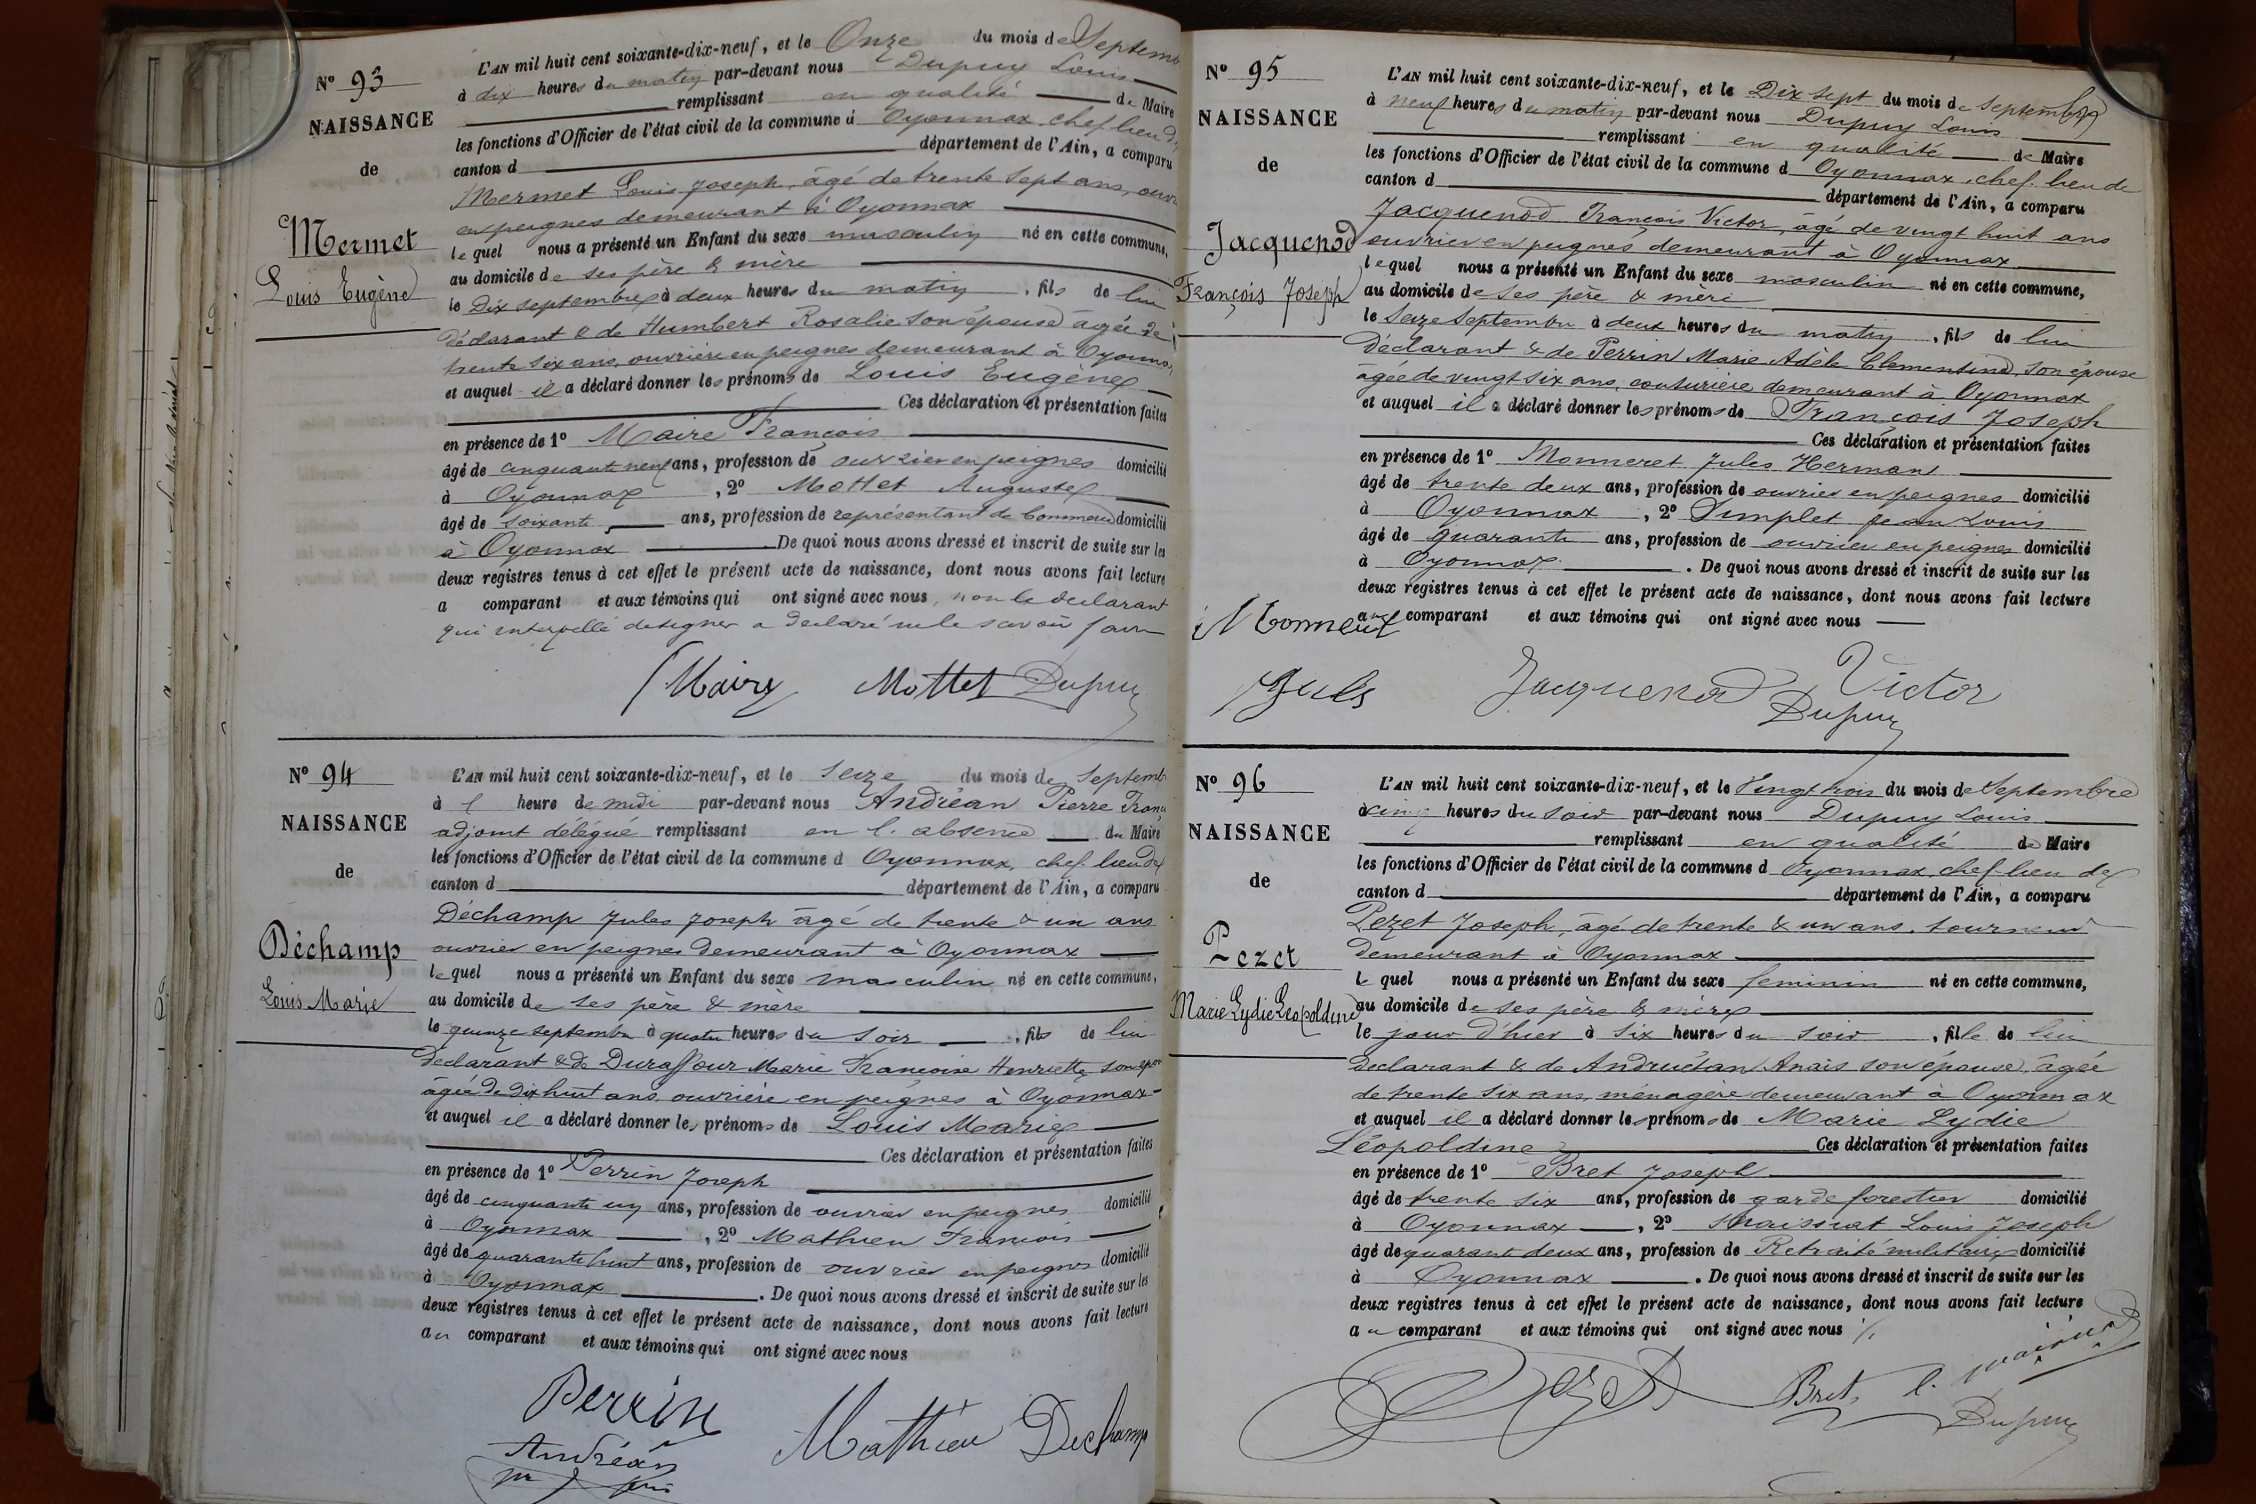 N° 93
NAISSANCE
de
Mermet
Louis Eugène
L'AN mil huit cent soixante-dix-neuf, et le Onze du mois de Septemb
à dix heures du matin par-devant nous Dupuy Louis
remplissant en qualité de Maire
les fonctions d'Officier de l'état civil de la commune d Oyonnax chef lieu de
canton d département de l'Ain, a comparu
Mermet Louis Joseph, âgé de trente sept ans, ouvr
en peignes demeurant à Oyonnax
lequel nous a présenté un Enfant du sexe masculin né en cette commune,
au domicile de ses père & mère
le Dix septembre à deux heures du matin, fils de lui
déclarant & de Humbert Rosalie son épouse âgée de
trente six ans, ouvrière en peignes demeurant à Oyonna
et auquel il a déclaré donner les prénoms de Louis Eugène
Ces déclaration et présentation faites
en présence de 1° Maire François
âgé de cinquante neuf ans, profession de ouvrier en peignes domicilié
à Oyonnax, 2° Mottet Auguste
âgé de soixante ans, profession de représentant de Commerce domicilié
à Oyonnax De quoi nous avons dressé et inscrit de suite sur les
deux registres tenus à cet effet le présent acte de naissance, dont nous avons fait lecture
a comparant et aux témoins qui ont signé avec nous, non le déclarant
qui interpellé de signer a déclaré ne le savoir faire
Maire Mottet Dupuy
N° 94
NAISSANCE
de
Déchamp
Louis Marie
L'AN mil huit cent soixante-dix-neuf, et le seize du mois de Septemb
à l heure de midi par-devant nous Andréan Pierre Franç
adjoint délégué remplissant en l'absence du Maire
les fonctions d'Officier de l'état civil de la commune d Oyonnax, chef lieu de
canton d département de l'Ain, a comparu
Déchamp Jules Joseph âgé de trente & un ans
ouvrier en peignes demeurant à Oyonnax
lequel nous a présenté un Enfant du sexe masculin né en cette commune,
au domicile de ses père & mère
le quinze septembre à quatre heures du soir, fils de lui
déclarant & de Duraffour Marie Françoise Henriette son épou
âgée de dix huit ans, ouvrière en peignes à Oyonnax
et auquel il a déclaré donner les prénoms de Louis Marie
Ces déclaration et présentation faites
en présence de 1° Perrin Joseph
âgé de cinquante un ans, profession de ouvrier en peignes domicilié
à Oyonnax, 2° Mathieu François
âgé de quarante huit ans, profession de ouvrier en peignes domicilié
à Oyonnax. De quoi nous avons dressé et inscrit de suite sur les
deux registres tenus à cet effet le présent acte de naissance, dont nous avons fait lecture
au comparant et aux témoins qui ont signé avec nous
Perrin
Andréan Mathieu Dechamp
N° 95
NAISSANCE
de
Jacquenod
François Joseph
L'AN mil huit cent soixante-dix-neuf, et le Dix sept du mois de Septembre
à neuf heures du matin par-devant nous Dupuy Louis
remplissant en qualité de Maire
les fonctions d'Officier de l'état civil de la commune d Oyonnax, chef lieu de
canton d département de l'Ain, a comparu
Jacquenod François Victor, âgé de vingt huit ans
ouvrier en peignes demeurant à Oyonnax
lequel nous a présenté un Enfant du sexe masculin né en cette commune,
au domicile de ses père & mère
le seize septembre à deux heures du matin, fils de lui
déclarant & de Perrin Marie Adèle Clementine, son épouse
âgée de vingt six ans, couturière demeurant à Oyonnax
et auquel il a déclaré donner les prénoms de François Joseph
Ces déclaration et présentation faites
en présence de 1° Monneret Jules Herman
âgé de trente deux ans, profession de ouvrier en peignes domicilié
à Oyonnax, 2° Simplet Jean Louis
âgé de quarante ans, profession de ouvrier en peignes domicilié
à Oyonnax. De quoi nous avons dressé et inscrit de suite sur les
deux registres tenus à cet effet le présent acte de naissance, dont nous avons fait lecture
au comparant et aux témoins qui ont signé avec nous
Monneret
Jules Jacquenod Victor
Dupuy
N° 96
NAISSANCE
de
Pezet
Marie Lydie Léopoldine
L'AN mil huit cent soixante-dix-neuf, et le Vingt trois du mois de Septembre
à cinq heures du soir par-devant nous Dupuy Louis
remplissant en qualité de Maire
les fonctions d'Officier de l'état civil de la commune d Oyonnax, chef-lieu de
canton d département de l'Ain, a comparu
Pezet Joseph, âgé de trente & un ans, tourneur
demeurant à Oyonnax
le quel nous a présenté un Enfant du sexe feminin né en cette commune,
au domicile de ses père & mère
le jour d'hier à six heures du soir, fille de lui
déclarant & de Andruétan Anaïs son épouse, âgée
de trente six ans, ménagère demeurant à Oyonnax
et auquel il a déclaré donner les prénoms de Marie Lydie
Léopoldine Ces déclaration et présentation faites
en présence de 1° Bret Joseph
âgé de trente six ans, profession de garde forestier domicilié
à Oyonnax, 2° Louis Joseph
âgé de quarante deux ans, profession de Retraité militaire domicilié
à Oyonnax. De quoi nous avons dressé et inscrit de suite sur les
deux registres tenus à cet effet le présent acte de naissance, dont nous avons fait lecture
au comparant et aux témoins qui ont signé avec nous
Pezet Bret
Dupuy